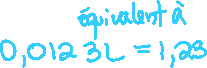 équivalent à
0,0123L = 1,23